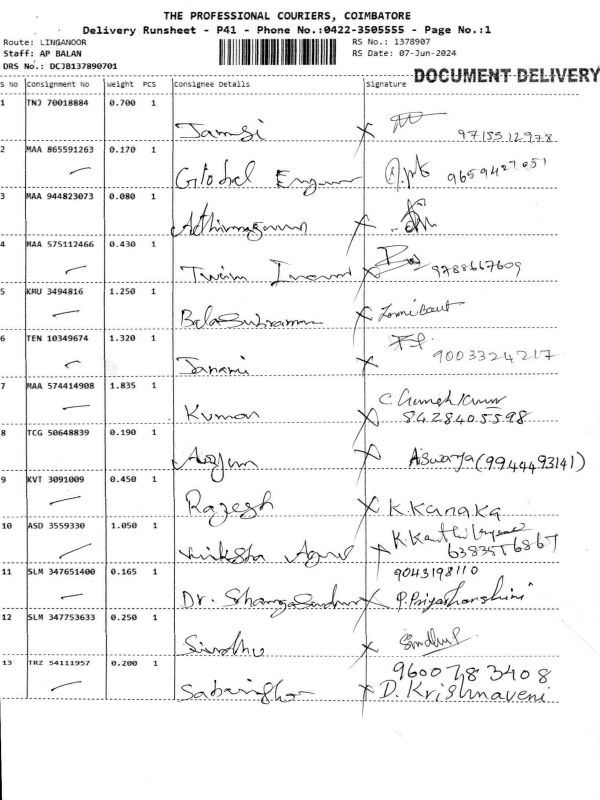 THE PROFESSIONAL COURIERS, COIMBATORE
Delivery Runsheet - P41 - Phone No.:0422-3505555 - Page No.:1
Route: LINGANOOR RS No.: 1378907
Staff: AP BALAN RS Date: 07-Jun-2024
DRS No.: DCJB137890701
DOCUMENT DELIVERY
S No Consignment No Weight PCS Consignee Details Signature
1 TNJ 70018884 0.700 1
Jamsi X 9715512978
2 MAA 865591263 0.170 1
Global 9659427051
3 MAA 944823073 0.080 1
X
4 MAA 575112466 0.430 1
Twim X 9788667609
5 KRU 3494816 1.250 1
X
6 TEN 10349674 1.320 1
Janani X 9003324217
7 MAA 574414908 1.835 1
Kumar X 8428405598
8 TCG 50648839 0.190 1
X Aswarya (9944493141)
9 KVT 3091009 0.450 1
Rajesh X K.Kanaka
10 ASD 3559330 1.050 1
X
11 SLM 347651400 0.165 1 9043198110
Dr. X P.Priyadharshini
12 SLM 347753633 0.250 1
Sindhu X Sindhu
13 TRZ 54111957 0.200 1 9600783408
X D. Krishnaveni